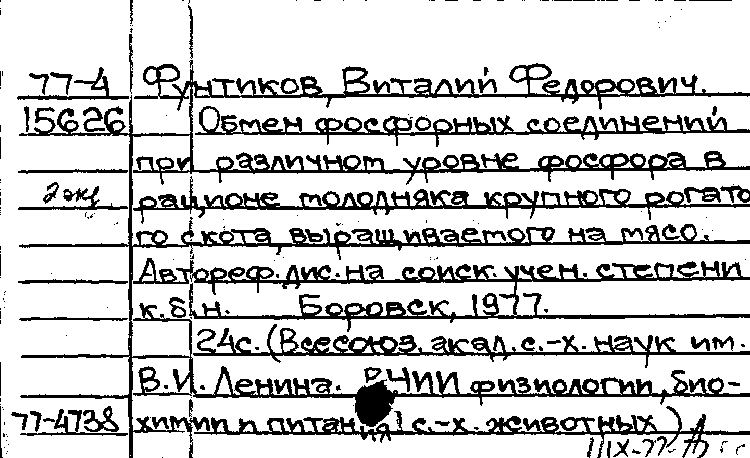 77-4 Фунтиков, Виталий Федорович.
15626 Обмен фосфорных соединений
при различном уровне фосфора в
2 экз рационе молодняка крупного рогато
го скота, выращиваемого на мясо.
Автореф. дис. на соиск. учен. степени
к.б.н. Боровск, 1977.
24с. (Всесоюз. акад. с.-х. наук им.
В.И. Ленина. ВНИИ физиологии, био-
77-4738 химии и питания с.-х. животных)